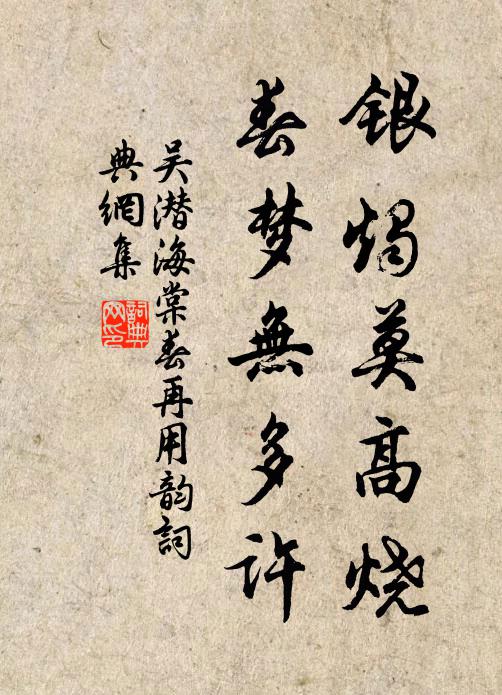 银烛莫高烧
春梦无多许
吴潜海棠春再用韵词
典网集
词典
网印